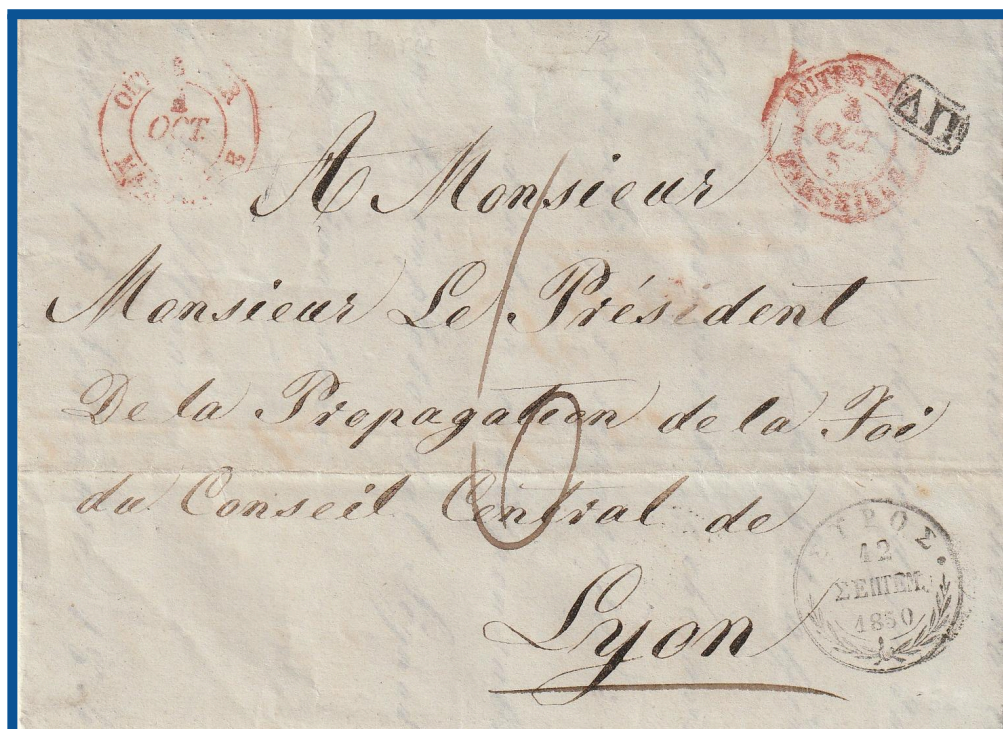 OCT.
OUTRE-MER
OCT
MARSEILLE
ΔΠ
A Monsieur
Monsieur Le Président
De la Propagation de la Foi
du Conseil Central de
Lyon
ΣΥΡΟΣ.
12
ΣΕΠΤΕΜ.
1850